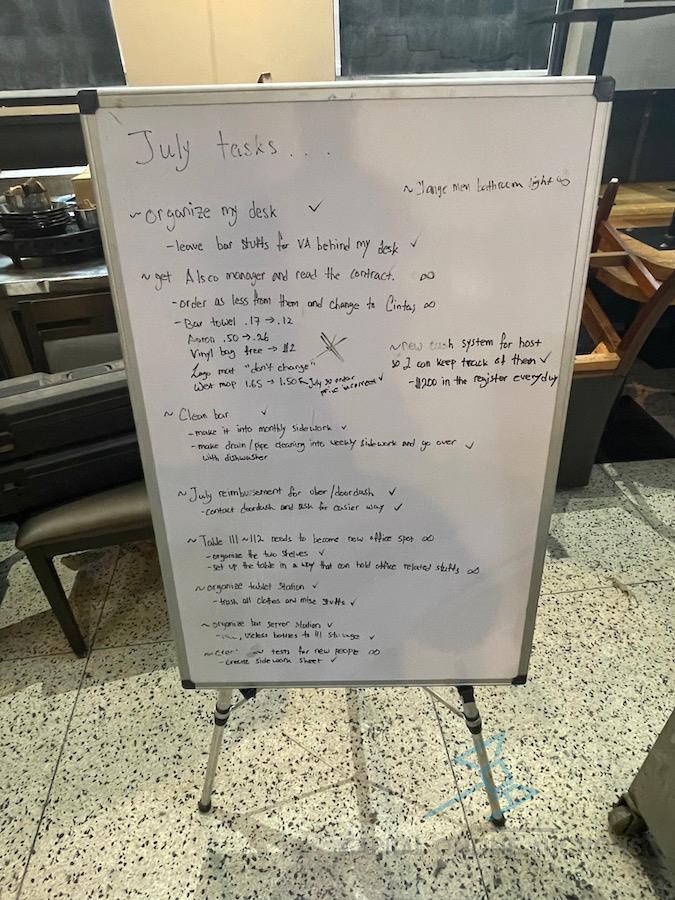 July tasks....
~ organize my desk ✓
- leave bar stuffs for VA behind my desk ✓
~ get Alsco manager and read the contract. ∞
- order as less from them and change to Cintas ∞
- Bar towel .17 → .12
Apron .50 → .26
Vinyl bag free → $2
Logo mat "don't change"
Wet mop 1.65 → 1.50 ← July 30 order price incorrect ✓
~ Clean bar ✓
- make it into monthly sidework ✓
- make drain/pipe cleaning into weekly sidework and go over ✓
with dishwasher
~ July reimbusement for uber/doordash ✓
- contact doordash and ask for easier way ✓
~ Table 111 ~ 112 needs to become new office spot ∞
- organize the two shelves ✓
- set up the table in a way that can hold office related stuffs ∞
~ organize tablet station ✓
- trash all clothes and mise stuffs ✓
~ organize bar server station ✓
useless bottles to 111 storage ✓
tests for new people ∞
- create sidework sheet ✓
men bathroom light ∞
~ new cash system for host
so I can keep track of them ✓
- $200 in the register everyday